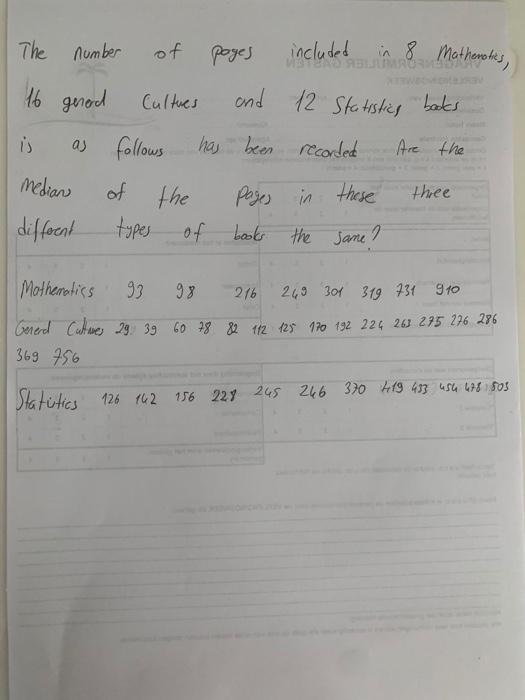 The number of pages included in 8 Mathematics,
16 general Cultures and 12 Statistics books
is as follows has been recorded Are the
Medians of the pages in these three
different types of books the same?
Mathematics 93 98 216 249 301 319 731 910
General Cultures 29 39 60 78 82 112 125 170 192 224 263 275 276 286
369 756
Statistics 126 142 156 228 245 246 370 419 433 454 478 503